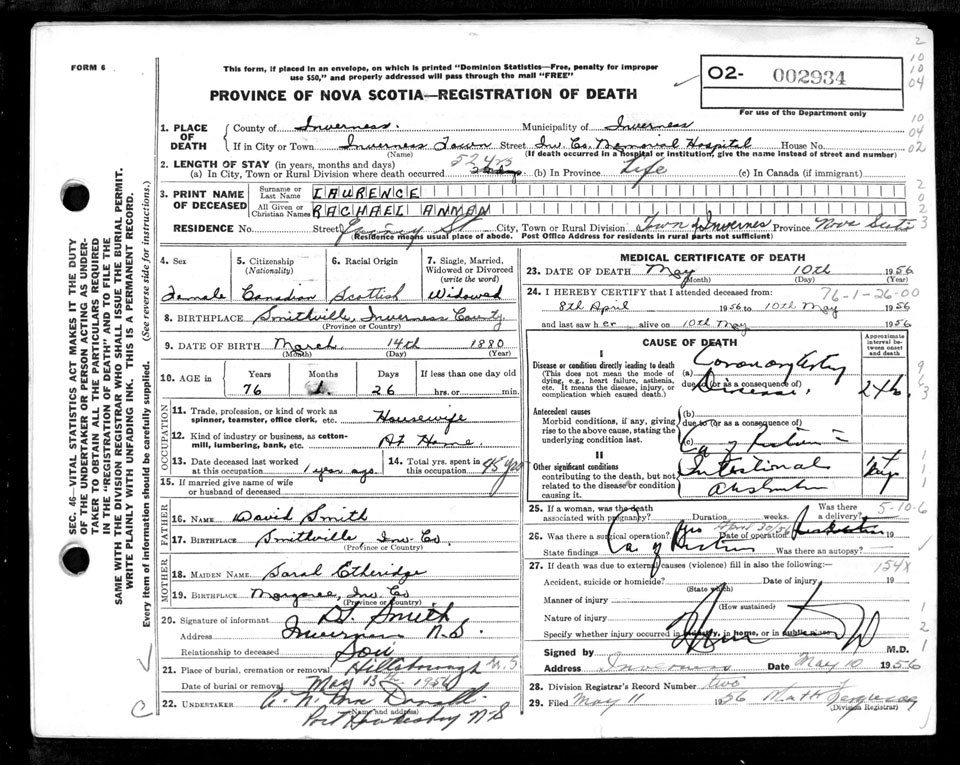 FORM 6
This form, if placed in an envelope, on which is printed "Dominion Statistics—Free, penalty for improper
use $50," and properly addressed will pass through the mail "FREE"
PROVINCE OF NOVA SCOTIA—REGISTRATION OF DEATH
02- 002934
For use of the Department only
SEC. 46—VITAL STATISTICS ACT MAKES IT THE DUTY
OF THE UNDERTAKER OR PERSON ACTING AS UNDER-
TAKER TO OBTAIN ALL THE PARTICULARS REQUIRED
IN THE "REGISTRATION OF DEATH" AND TO FILE THE
SAME WITH THE DIVISION REGISTRAR WHO SHALL ISSUE THE BURIAL PERMIT.
WRITE PLAINLY WITH UNFADING INK. THIS IS A PERMANENT RECORD.
Every item of information should be carefully supplied. (See reverse side for instructions.)
1. PLACE OF DEATH
County of Inverness. Municipality of Inverness
If in City or Town Inverness Town Street Inv Co. Memorial Hospital House No.
(Name) (If death occurred in a hospital or institution, give the name instead of street and number)
2. LENGTH OF STAY (in years, months and days)
(a) In City, Town or Rural Division where death occurred 52 yrs (b) In Province Life (c) In Canada (if immigrant)
3. PRINT NAME OF DECEASED
Surname or Last Name LAURENCE
All Given or Christian Names RACHAEL ANMAN
RESIDENCE No. Street St City, Town or Rural Division Town of Inverness Province Nova Scotia
(Residence means usual place of abode. Post Office Address for residents in rural parts not sufficient)
4. Sex
Female
5. Citizenship (Nationality)
Canadian
6. Racial Origin
Scottish
7. Single, Married, Widowed or Divorced (write the word)
Widowed
8. BIRTHPLACE Smithville, Inverness County
(Province or Country)
9. DATE OF BIRTH March 14th 1880
(Month) (Day) (Year)
10. AGE in Years Months Days If less than one day old
76 1 26 hrs. or min.
OCCUPATION
11. Trade, profession, or kind of work as spinner, teamster, office clerk, etc. Housewife
12. Kind of industry or business, as cotton-mill, lumbering, bank, etc. At Home.
13. Date deceased last worked at this occupation 1 year ago.
14. Total yrs. spent in this occupation 45 yrs
15. If married give name of wife or husband of deceased
FATHER
16. NAME David Smith
17. BIRTHPLACE Smithville Inv Co.
(Province or Country)
MOTHER
18. MAIDEN NAME Sarah Etheridge
19. BIRTHPLACE Margaree, Inv. Co
(Province or Country)
20. Signature of informant Smith
Address Inverness N.S.
Relationship to deceased Son
21. Place of burial, cremation or removal Hillsborough N.S
Date of burial or removal May 13th 1956
22. UNDERTAKER
(Name and address)
Port Hawkesbury N S
MEDICAL CERTIFICATE OF DEATH
23. DATE OF DEATH May 10th 1956
(Month) (Day) (Year)
24. I HEREBY CERTIFY that I attended deceased from: 76-1-26-00
8th April 1956 to 10th May 1956
and last saw her alive on 10th May 1956
CAUSE OF DEATH
Approximate interval between onset and death
I
Disease or condition directly leading to death
(This does not mean the mode of dying, e.g., heart failure, asthenia, etc. It means the disease, injury, or complication which caused death.)
(a) Coronary Artery
due to (or as a consequence of) Disease.
Antecedent causes
Morbid conditions, if any, giving rise to the above cause, stating the underlying condition last.
(b)
due to (or as a consequence of)
(c) Ca of Rectum
II
Other significant conditions
contributing to the death, but not related to the disease or condition causing it.
Intestinal
Obstruction
25. If a woman, was the death associated with pregnancy? Duration weeks. Was there a delivery?
5-10-6
26. Was there a surgical operation? Yes Date of operation April 30/56 19
State findings Ca of Rectum Was there an autopsy?
27. If death was due to external causes (violence) fill in also the following:
154X
Accident, suicide or homicide? Date of injury 19
(State which)
Manner of injury
(How sustained)
Nature of injury
Specify whether injury occurred in industry, in home, or in public place
Signed by M.D.
Address Inverness Date May 10 1956
28. Division Registrar's Record Number two
29. Filed May 11 1956
(Division Registrar)